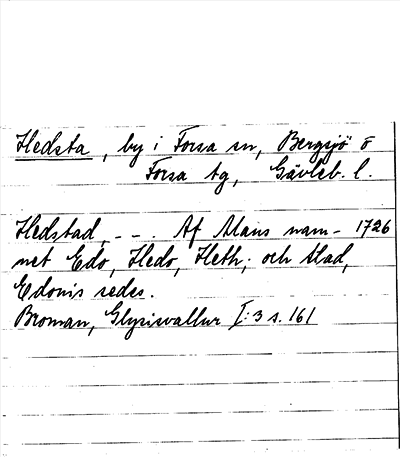 Hedsta, by i Forsa sn, Bergsjö o
Forsa tg, Gävleb. l.
Hedstad, - - . Af Mans nam- 1726
net Edo, Hedo, Heth; och stad,
Edonis sedes.
Broman, Glysisvallur I:3 s. 161